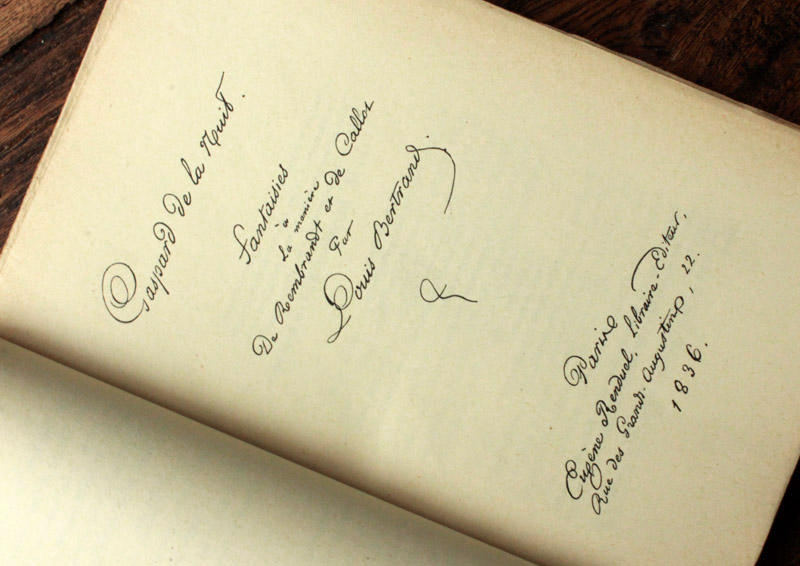 Gaspard de la Nuit.
Fantaisies
à
la manière
De Rembrandt et de Callot
Par
Louis Bertrand.
Paris
Eugène Renduel, Libraire-Editeur,
Rue des Grands-Augustins, 22.
1836.